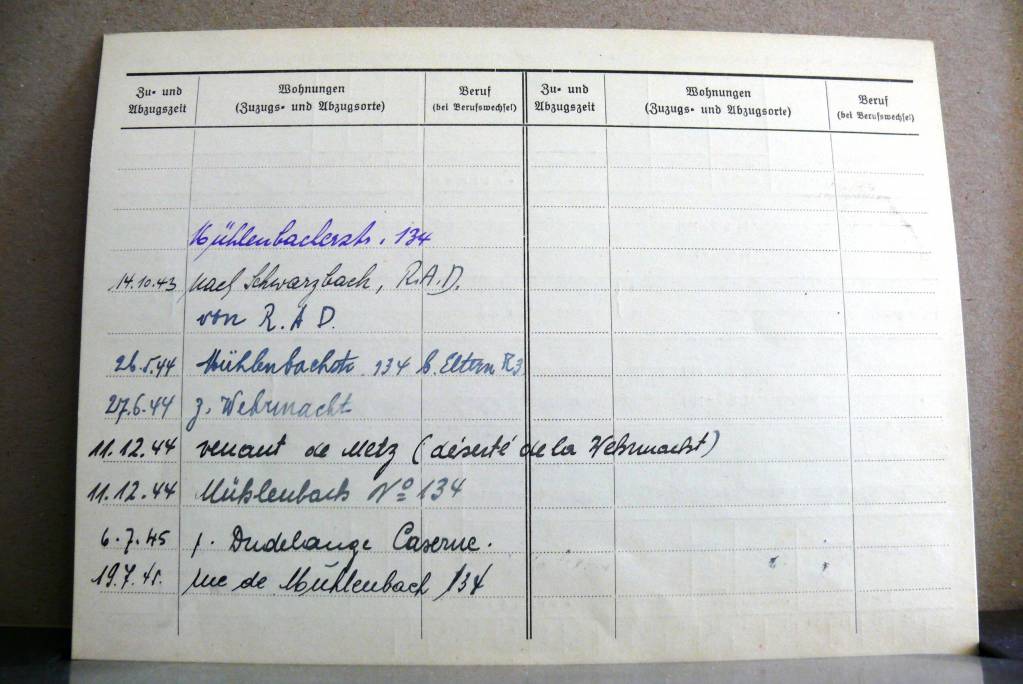 Zu- und Abzugszeit Wohnungen (Zuzugs- und Abzugsorte) Beruf (bei Berufswechsel) Zu- und Abzugszeit Wohnungen (Zuzugs- und Abzugsorte) Beruf (bei Berufswechsel)
Mühlenbacherstr. 134
14.10.43 nach Schwarzbach, R.A.D.
von R.A.D.
26.5.44 Mühlenbachstr. 134 b. Eltern
27.6.44 z. Wehrmacht
11.12.44 venant de Metz (déserté de la Wehrmacht)
11.12.44 Mühlenbach No 134
6.7.45 p. Dudelange Caserne.
19.7.45. rue de Mühlenbach 134